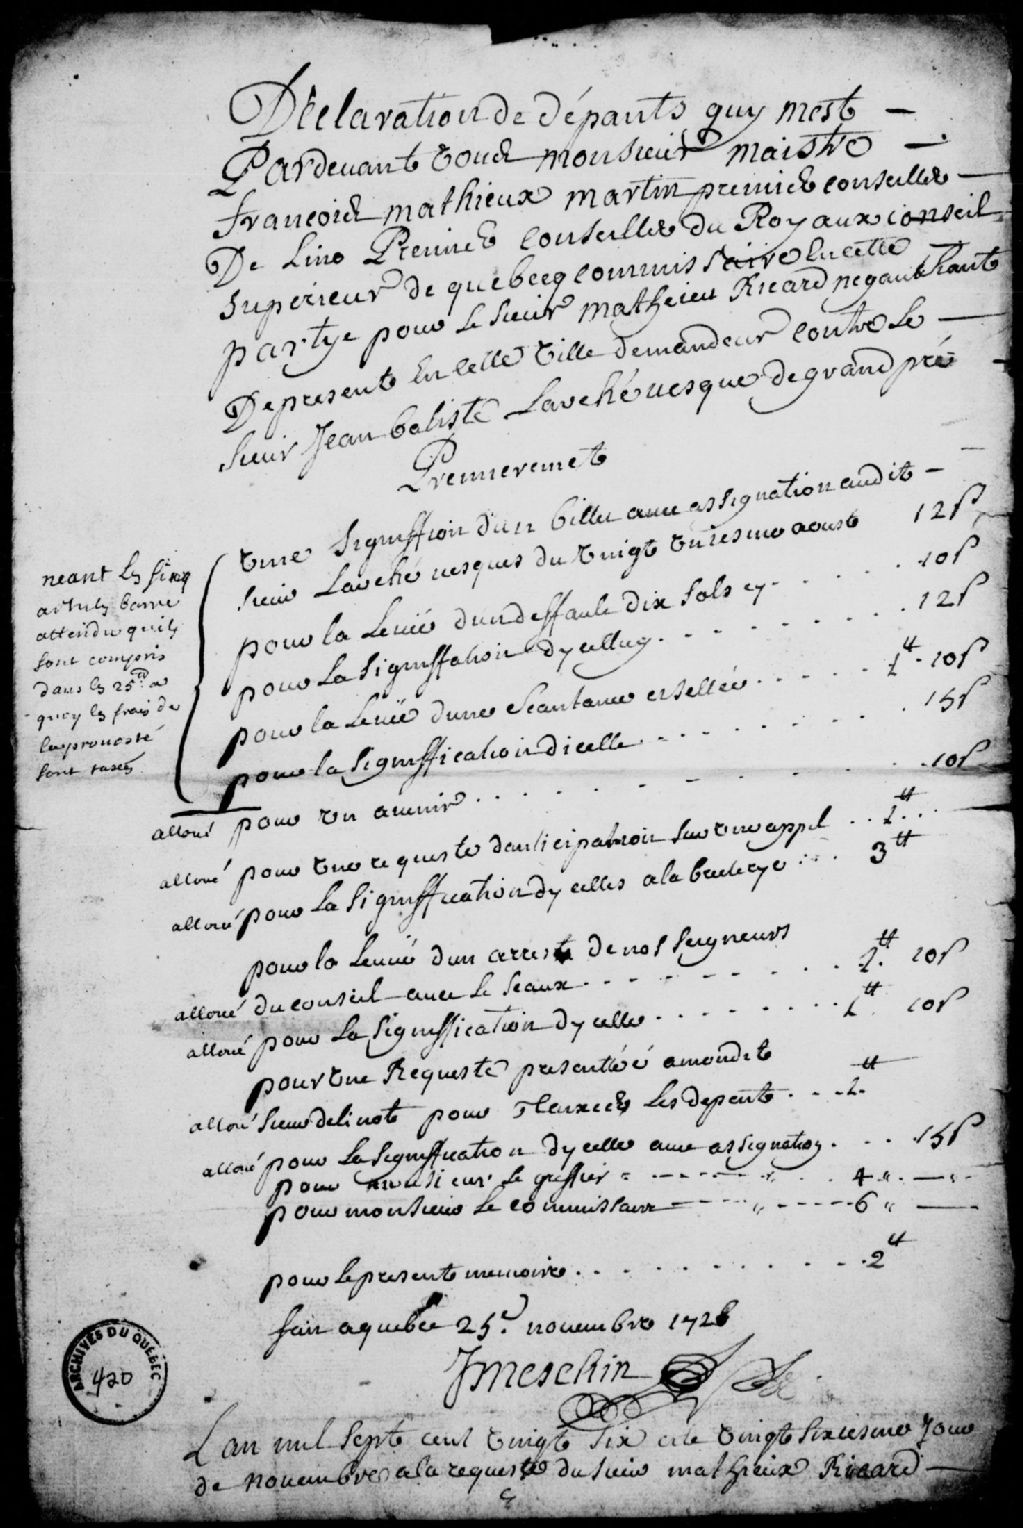 Declaration de dépants quy mest —
Pardevant vous monsieur maistre —
francoies mathieux martin premier conseiller —
De Lino Premier conseiller du Roy aux conseil
superieur de quebecq commissaire En cette
partye pour Le sieur mathieu Ricard negauthant
De present En cette ville demandeur contre Le —
sieur Jean batiste Laveche vesque de grand pré
Premierement
Une Signiffion d'un billet avec assignation audit —
sieur Laveché vesques du vingt uniesme aoust 12 s
pour la Levée d'un deffault dix sols cy . . . . . 10 s
pour La Signiffation d'ycelluy . . . . . . . 12 s
pour la Levée d'une Seantance et sellée . . . . . 1 ₶ 10 s
pour la Signiffication dicelle . . . . . . . 15 s
neant les sinq
articles barré
attendu quils
sont compris
dans les 25 ₶ a
quoy les frais de
la prevosté
sont taxés
alloué pour un avenir . . . . . . . . 10 s
alloué pour une requeste d'anticipation sur une appel . . 1 ₶ . .
alloué pour La Signiffication d'ycelles a la bat . . . 3 ₶
pour la Levée d'un arrest de nos seigneurs
alloué du conseil avec le seaux . . . . . . . 1 ₶ 10 s
alloué pour La Signiffication d'ycelle . . . . . . 1 ₶ 10 s
pour une Requeste presentéé a mondit
alloué sieur delinot pour Les depents . . . 1 ₶
alloué pour La Signiffication d'ycelle avec assignation . . . 15 s
pour monsieur le greffier " — — — " . . 4 " . — " .
pour monsieur Le commissaire — — " — — — 6 " —
pour le present memoire . . . . . . . . . 2 ₶
fait a quebec 25.e novembre 1726
Jmeschin
ARCHIVES DU QUÉBEC
420
L an mil sept cent vingt six et le vingt sixiesme Jour
de novembre a la requeste du sieur mathieux Ricard —